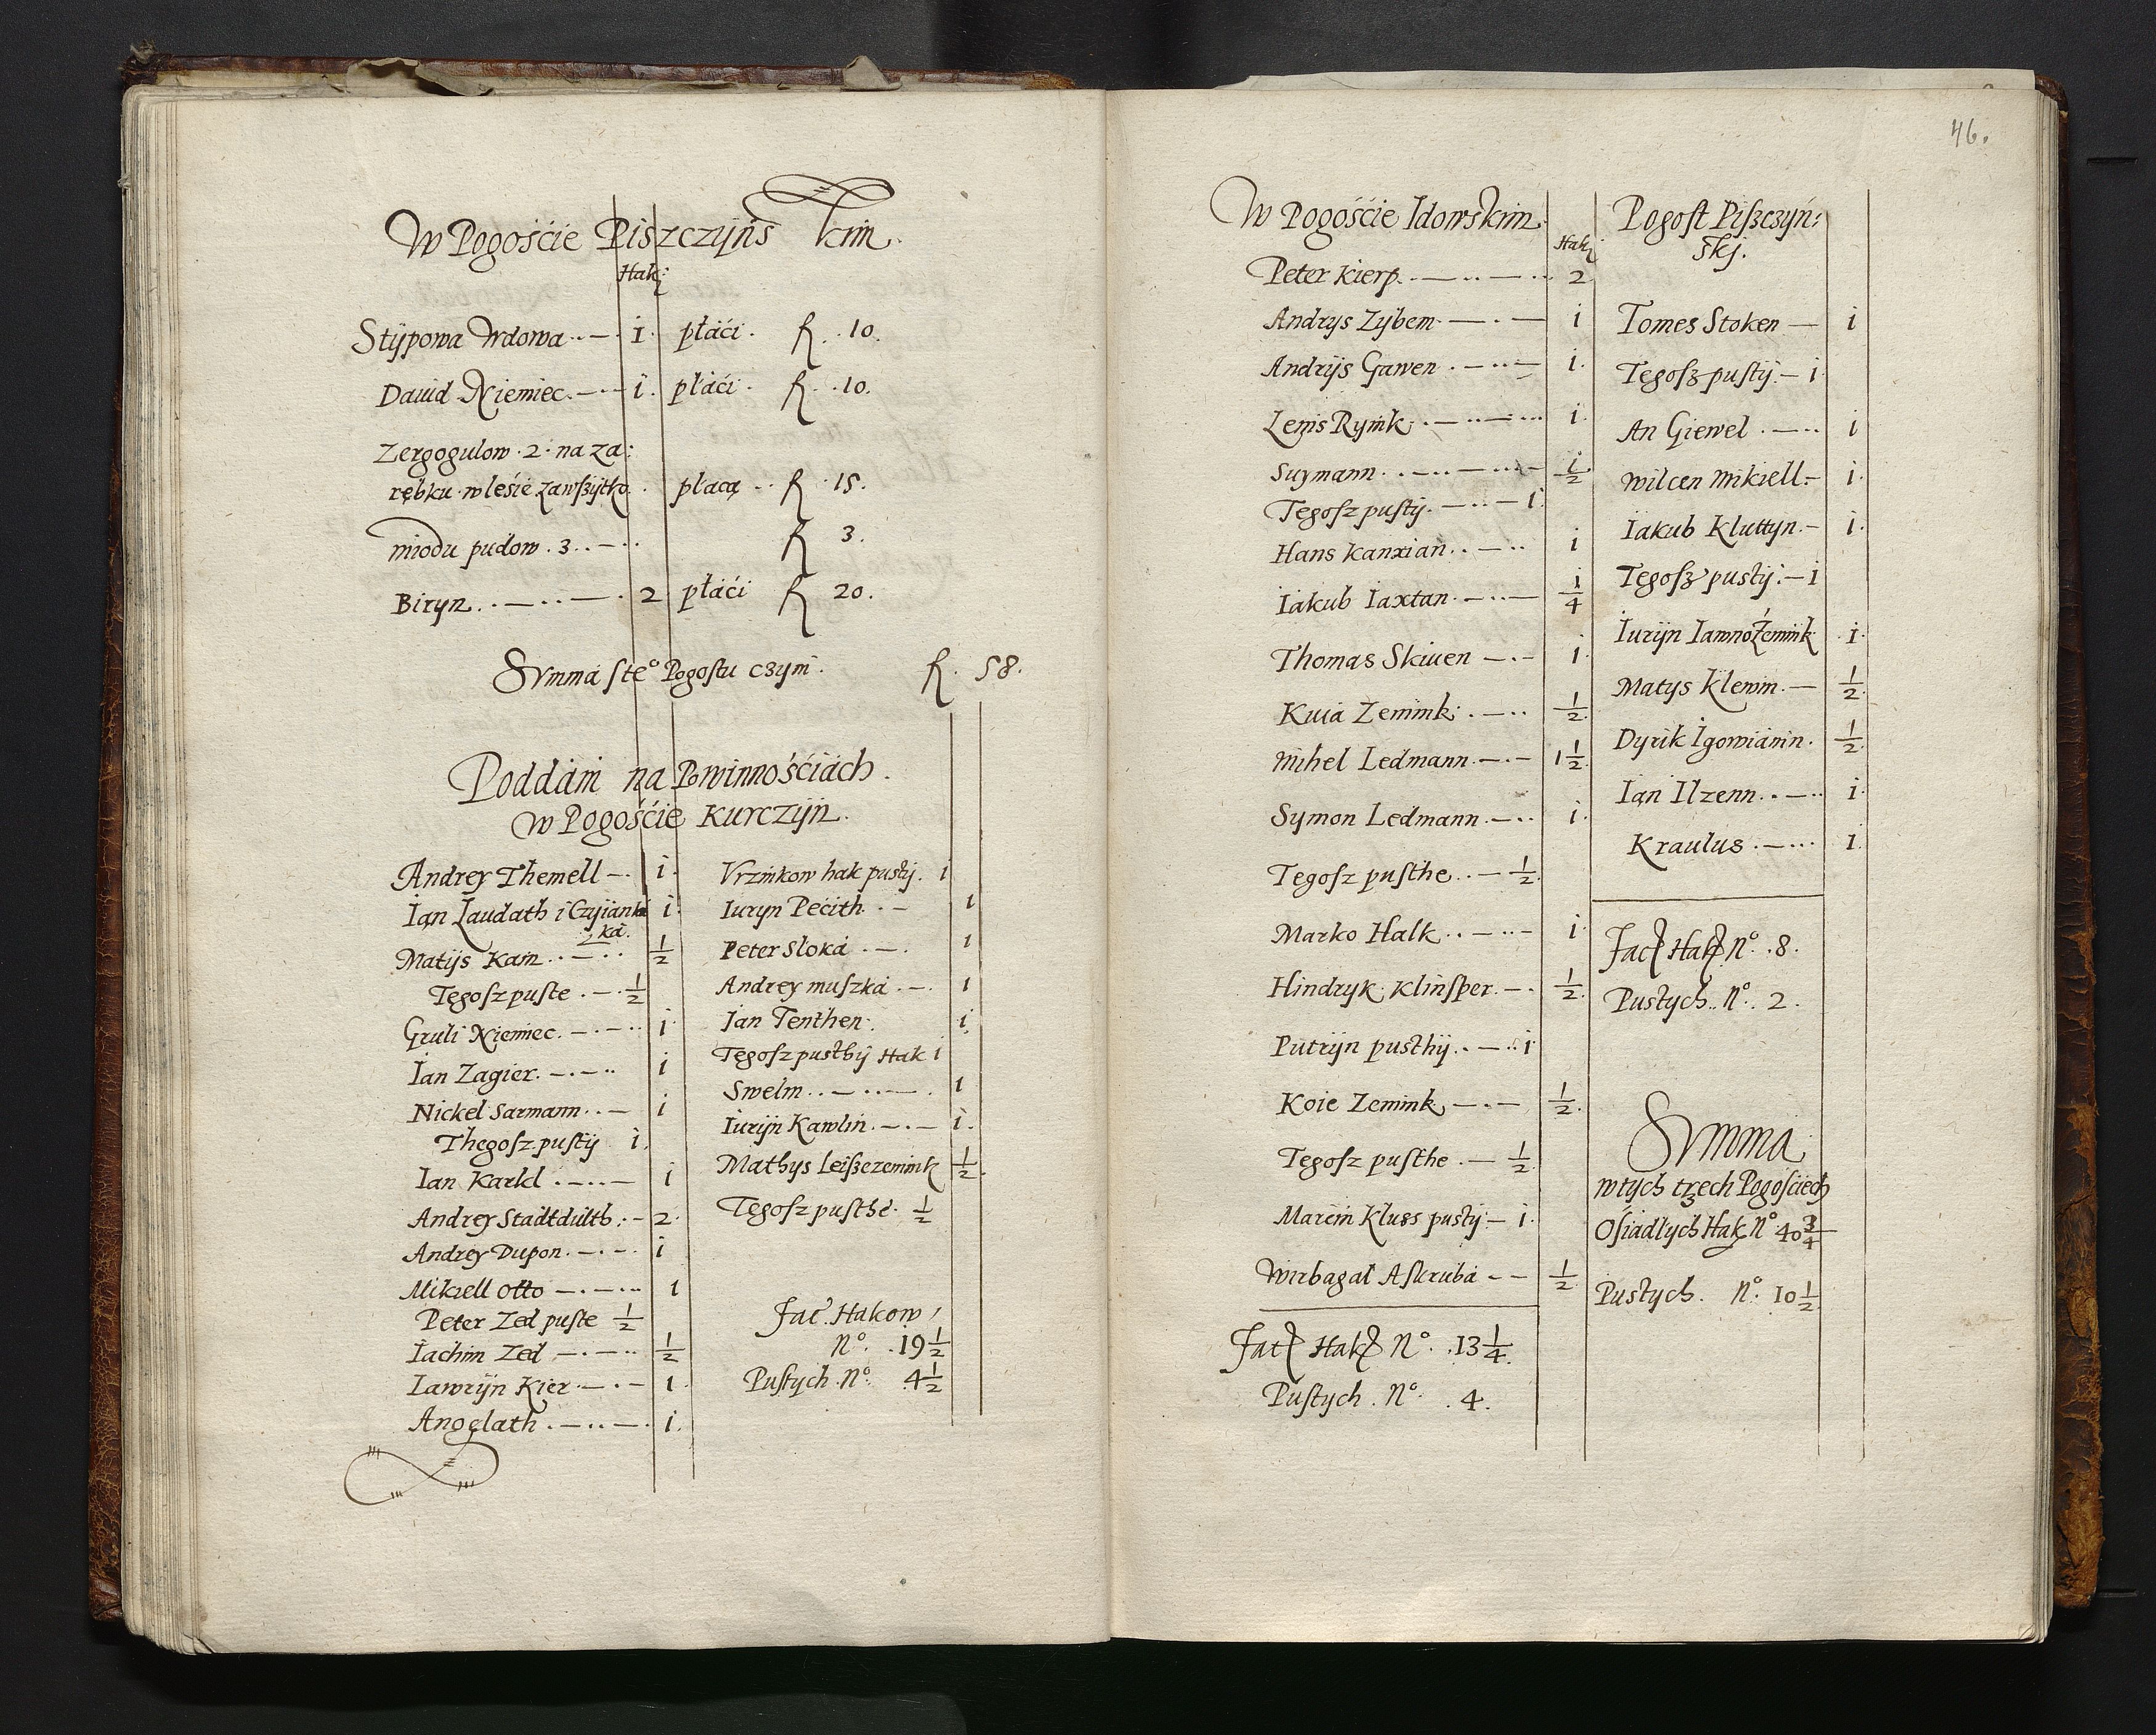 W Pogośćie Piszczyńs kim.
Hakj
Stÿpowa Wdowa ..—. 1. płáći. fl. .10.
Dauid Niemiec.—..— 1. płáći. fl. .10.
Zergogulow .2. na za:
rębku w leśie zawszÿtko. płacą .. fl. .15.
miodu pudow .3..—.. fl 3.
Biryn..—..—. 2 płáći fl 20.
Summá ste° Pogostu czym. fl. 58.
Poddáni na Powinnośćiách.
W Pogośćie Kurczÿn.
Andrey Themell —. 1.
Ian Laudath i Czyiank
ká.
1.
Matÿs Kain..—.. ½
Tegosz puste .—. ½
Gruli Niemiec.—.—.. 1.
Ian Zagier.—.—.. 1
Nickel Sarmann..— 1
Thegosz pustÿ 1.
Ian Karkl .—..— 1
Andrey Stadtdulth.— 2.
Andrey Dupon.—.—. 1
Mikiell Otto —.—... 1
Peter Zed puste ½
Iachim Zed —.—.. ½
Iawrÿn Kier.—.— 1.
Anogłath.—..—. 1.
Vrzinkow hak pustÿ. 1
Iuryn Pećith..— 1
Peter Sloká .—. 1
Andrey muszká .—. 1
Ian Tenthen. 1
Tegosz pusthÿ Hak 1
Swelm..—..—. 1
Iurÿn Kawlin.—.— 1.
Mathys Leiszezemink ½.
Tegosz pusthe. ½
Fac. Hakow
N°. .19½
Pustych. N°. 4½
46.
W Pogośćie Idowskim.
Hakj
Peter Kierp.—..—.. 2
Andrys Zÿbem—.— 1
Andrÿs Gawen .—..— 1.
Lenis Rymk.—..—... 1.
Suymann..—..—...— ½
Tegosz pustÿ.—..— 1.
Hans kanxian..—.. 1
Iakub Iaxtan.—..— ¼
Thomas Skiuen —.— 1.
Kuiá Zemink .—.. ½
Mihel Ledmann.—.— 1½
Symon Ledmann.—.. 1.
Tegosz pusthe..— ½.
Marko Halk..—..— 1.
Hindryk Klinsper.—. ½
Putrÿn pusthÿ..—.. 1.
Koie Zemink —.— ½.
Tegosz pusthe .— ½
Marcin Kluss pustÿ— 1.
Wirbagal Askrubá —— ½
Facit Hakj N°. .13¼.
Pustych. N°. .4.
Pogost Piszczyń:
skj.
Tomes Stoken — 1
Tegosz pustÿ.— 1
An Giewel .—.. 1
Wilcen Mikiell.— 1.
Iakub Kluttyn.— 1.
Tegosz pustÿ.— 1
Iurÿn Iawnożemink. 1.
Matys Klewin.— ½
Dyrik Igowiánin. ½
Ian Ilzenn..—.. 1.
Kraulus.—... 1.
Facit Hakj N°. .8.
Pustych.. N°. 2.
Summa
w tych trzech Pogośćiech
Ośiadłych Hakj N° 40¾
Pustych. N°. 10½